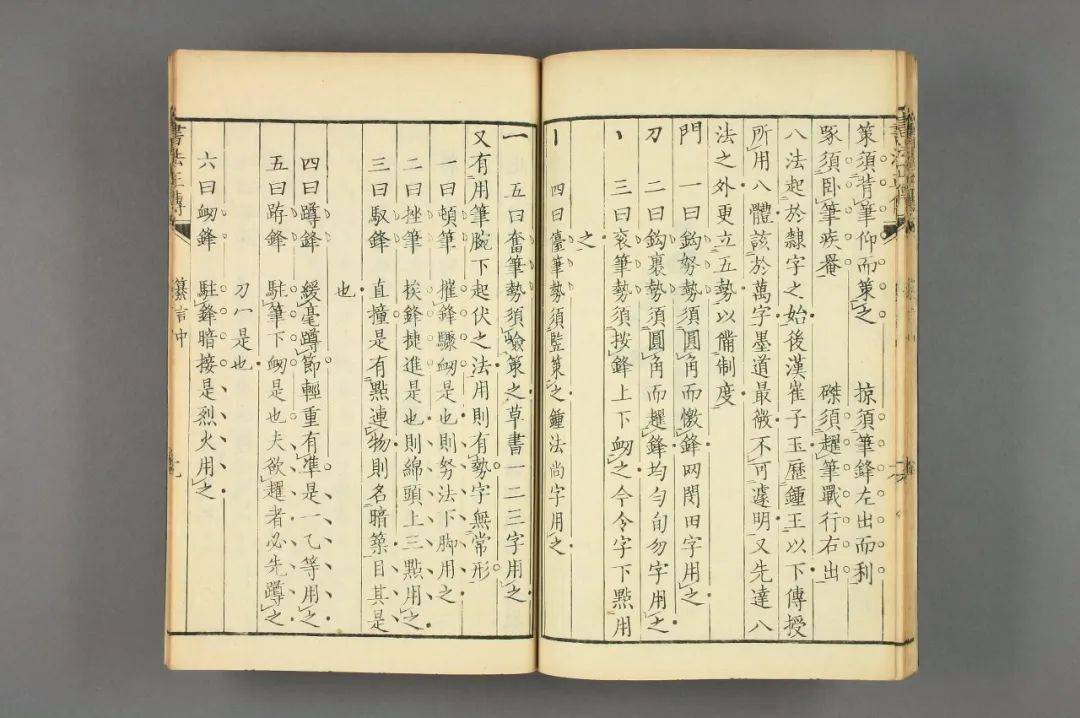 策須背筆仰而策之　掠須筆鋒左出而利
啄須卧筆疾罨　磔須趯筆戰行右出
八法起於隸字之始後漢崔子玉歷鍾王以下傳授
所用八體該於萬字墨道最微不可遽明又先達八
法之外更立五勢以備制度
門　一曰鈎努勢須圓角而憿鋒罔閔田字用之
刀　二曰鈎裹勢須圓角而趯鋒均勻旬勿字用之
丶　三曰衮筆勢須按鋒上下衂之今令字下㸃用
之
丨　四曰儓筆勢須監策之鍾法尚字用之
一　五曰奮筆勢須險策之草書一二三字用之
又有用筆腕下起伏之法用則有勢字無常形
一曰頓筆　摧鋒驟衂是也則努法下脚用之
二曰挫筆　挨鋒捷進是也則綿頭上三㸃用之
三曰馭鋒　直撞是有㸃連物則名暗築目其是
也
四曰蹲鋒　緩毫蹲節輕重有準是一乀等用之
五曰䠧鋒　駐筆下衂是也夫欲趯者必先蹲之
刀一是也
六曰衂鋒　駐鋒暗接是烈火用之
書法正傳　纂言中　九